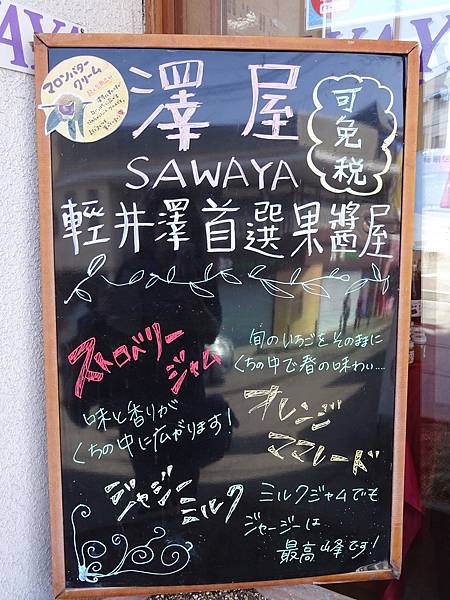 マロンバター
クリーム
澤屋
可免税
SAWAYA
輕井澤首選果醬屋
ストロベリー
ジャム
旬のいちごをそのままに
くちの中で春の味わい....
味と香りが
くちの中に広がります!
オレンジ
ママレード
ジャージー
ミルク
ミルクジャムでも
ジャージーは
最高峰です!